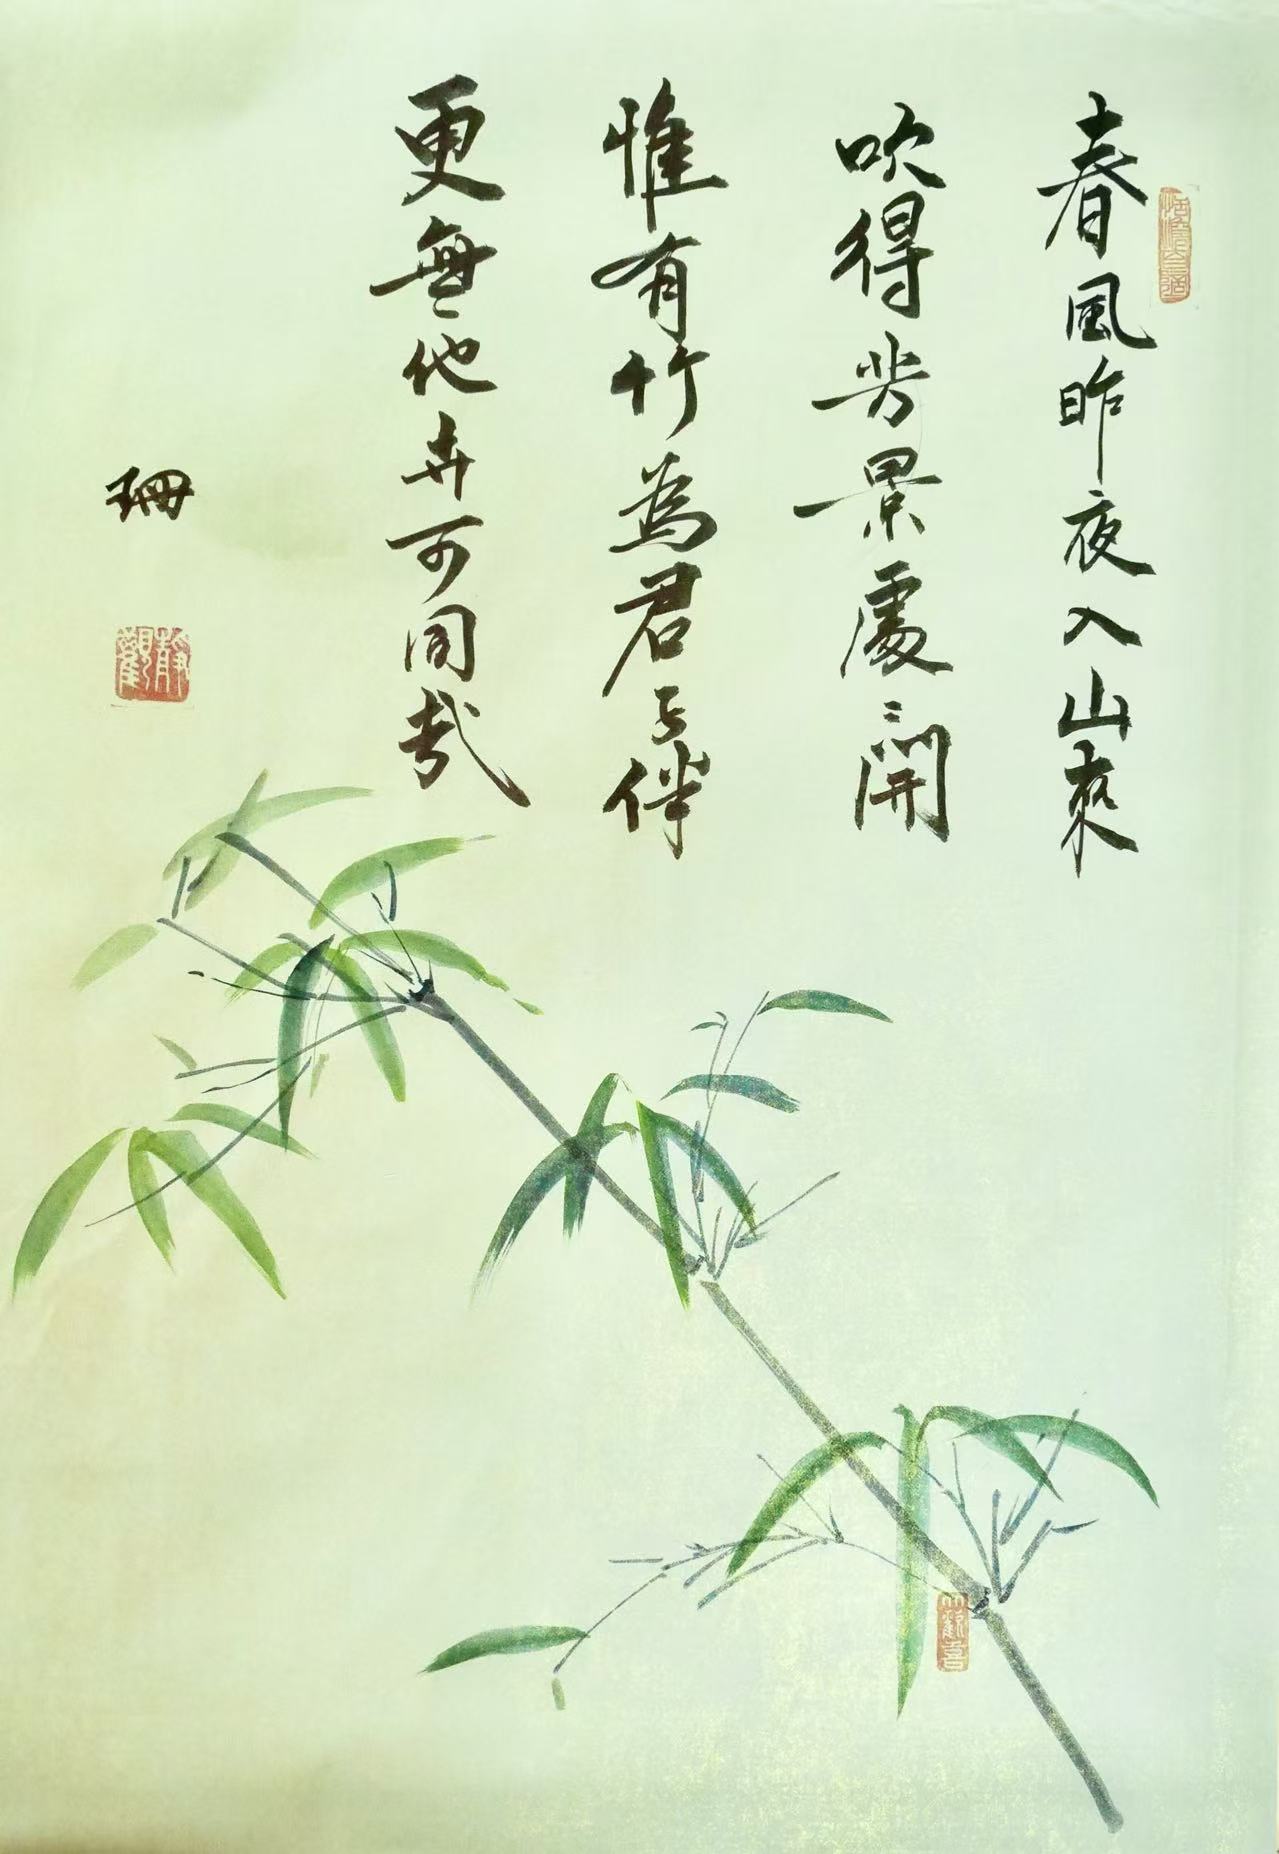 春風昨夜入山來
吹得芳景處〻開
惟有竹為君與伴
更無他卉可同哉
珊
靜觀